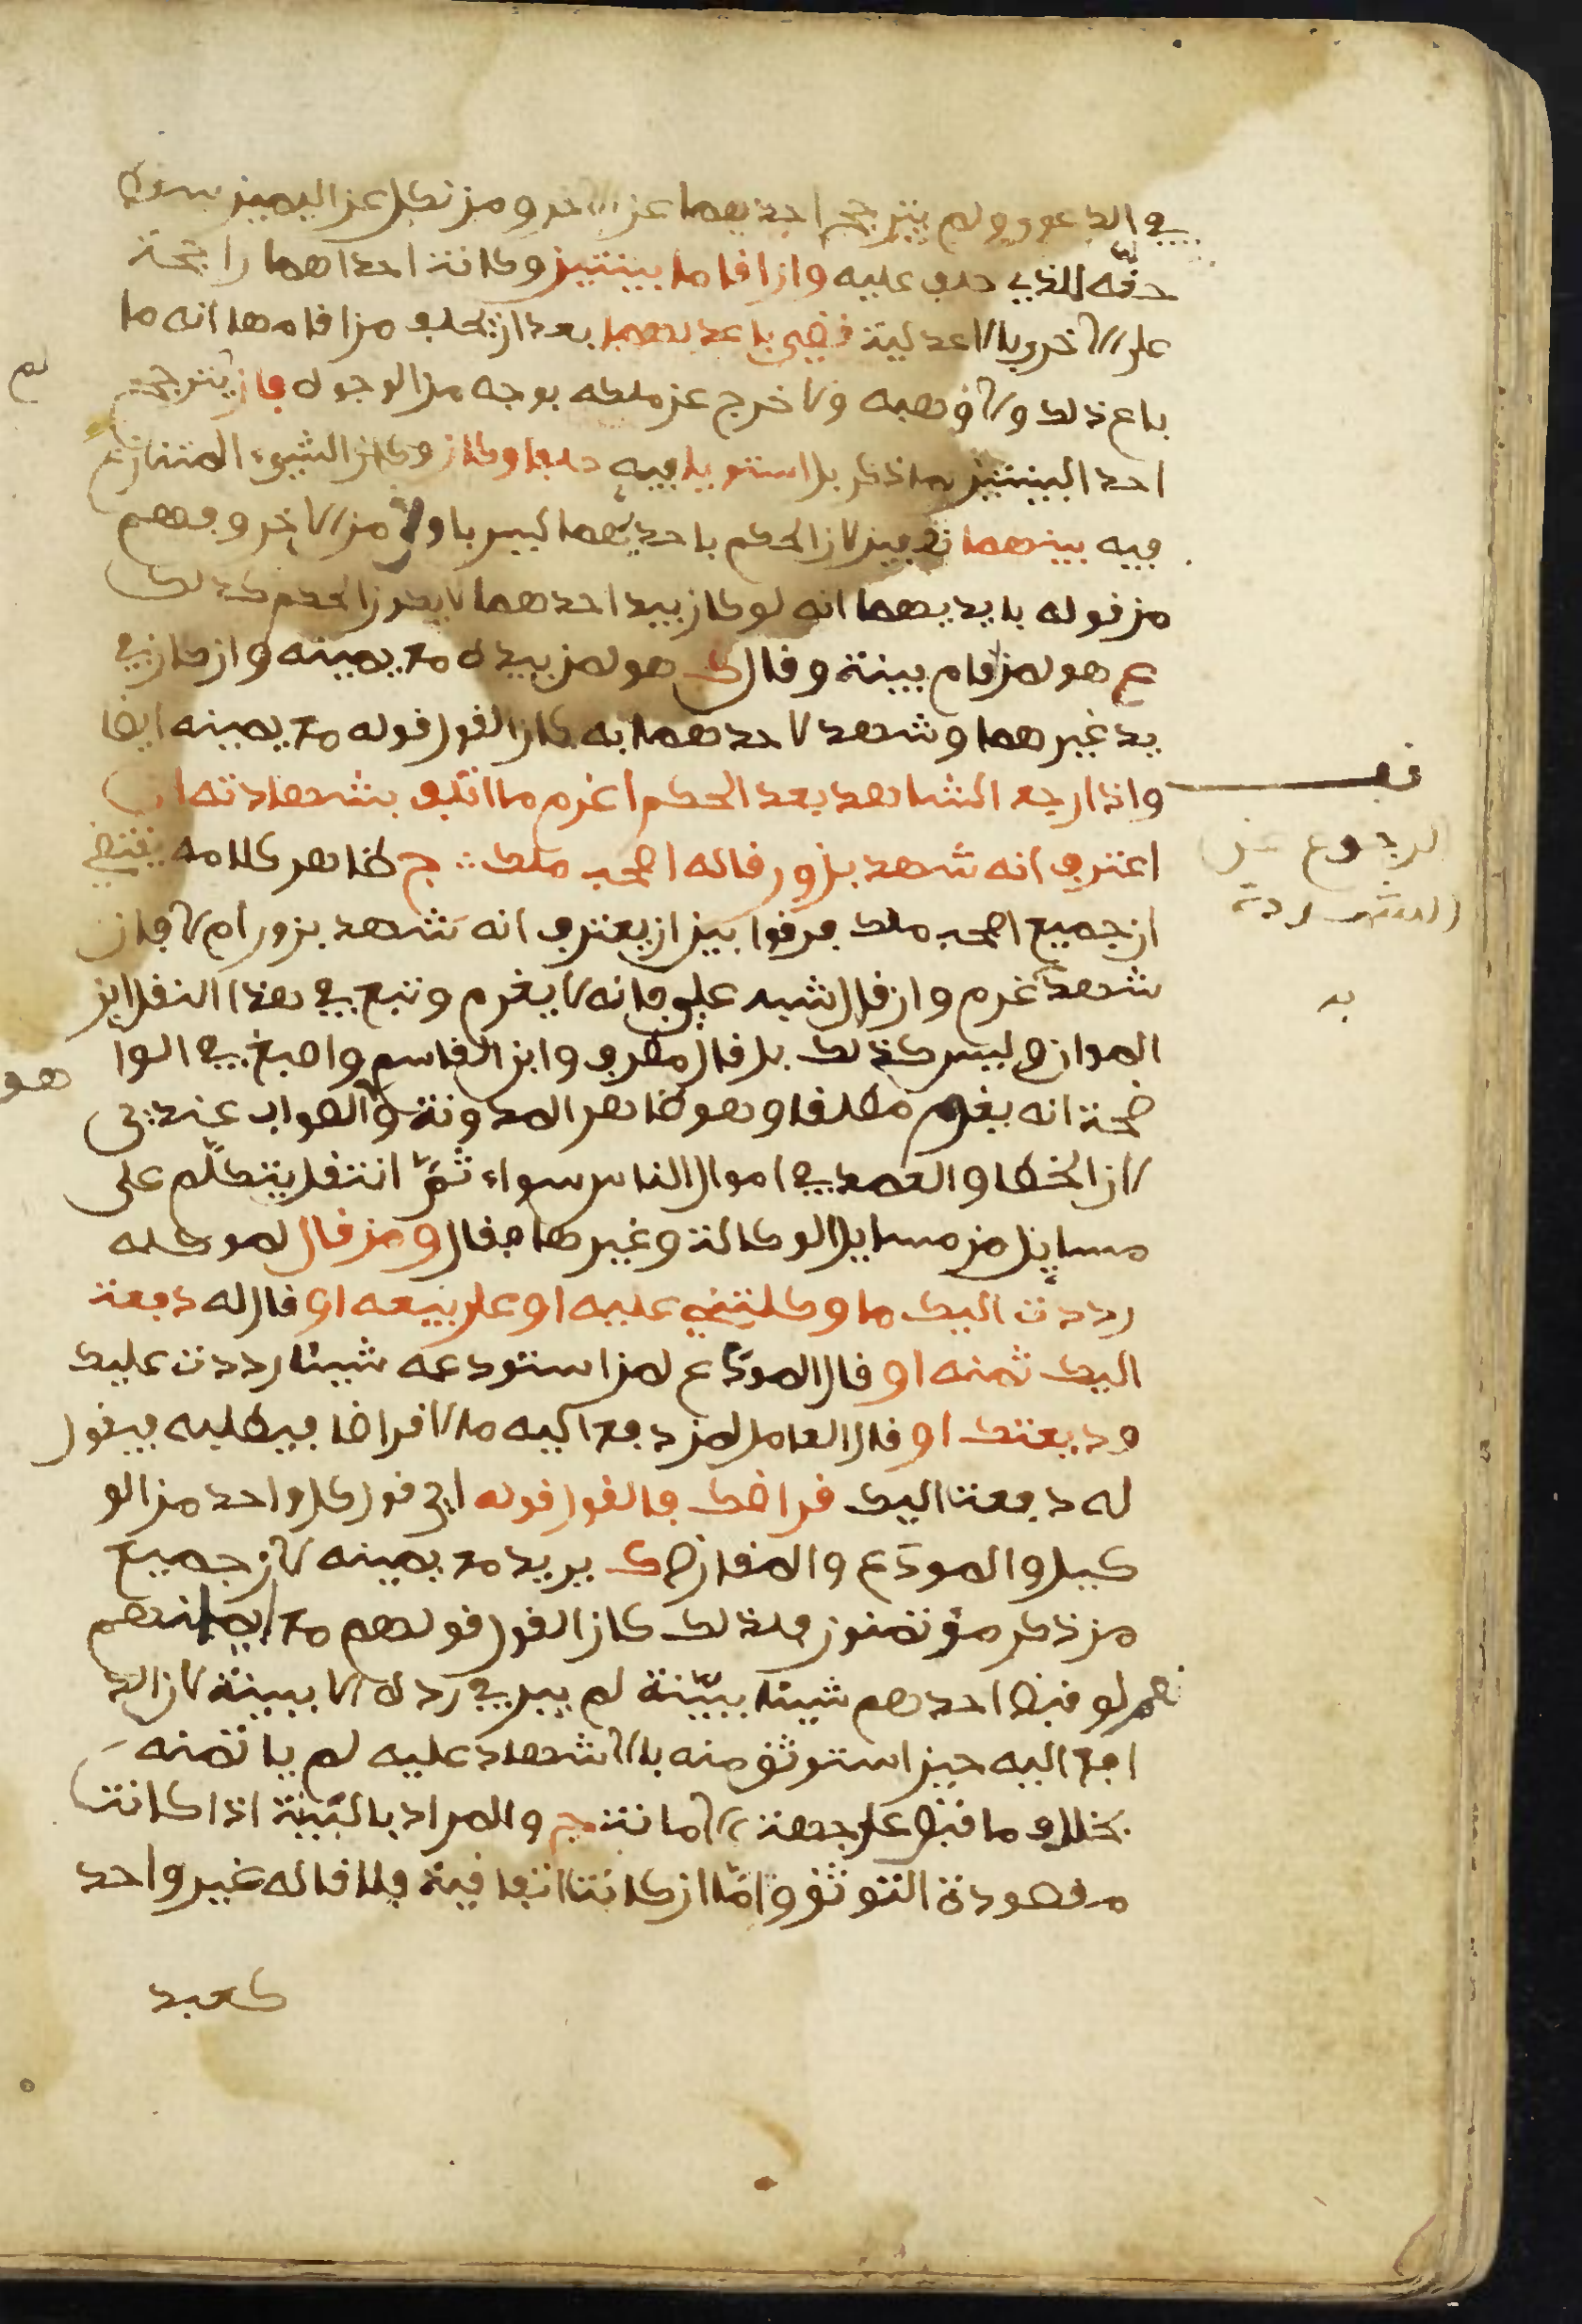 في الدعوى ولم يترجح احديهما عن الاخر ومن نكل عن اليمين سقط
حقه للذي حلف عليه وان اقاما بينتين وكانت احداهما راجحة
على الاخرى بالاعدلية فقضى باعدلهما بعد ان يحلف من اقامها انه ما
باع ذلك ولا وهبه ولا خرج عن ملكه بوجه من الوجوه فان لم يترجح
احد البينتين بما ذكر بل استويا فيه حلفا وكان وكان الشيء المتنازع
فيه بينهما نصفين لان الحكم باحديهما ليس باولى من الاخر وفهم
من قوله بايديهما انه لو كان بيد احدهما لا يكون الحكم كذلك
ع هو لمن اقام بينة وقال ك هو لمن بيده مع يمينه وان كان في
يد غيرهما وشهد لاحدهما به كان القول قوله مع يمينه ايضا
واذا رجع الشاهد بعد الحكم اغرم ما اتلف بشهادته ان
اعترف انه شهد بزور قاله اصحب ملك ج ظاهر كلامه يقتضي
ان جميع اصحب ملك فرقوا بين ان يعترف انه شهد بزور ام لا فان
شهد به غرم وان قال شبه علي فانه لا يغرم وتبع في هذا النقل ابن
المواز وليس كذلك بل قال مطرف وابن القاسم واصبغ في الوا
ضحة انه يغرم مطلقا وهو ظاهر المدونة وهو الصواب عندي
لان الخطا والعمد في اموال الناس سواء ثم انتقل يتكلم على
مسايل من مسايل الوكالة وغيرها فقال ومن قال لموكله
رددت اليك ما وكلتني عليه او على بيعه او قال له دفعت
اليك ثمنه او قال المودع لمن استودعه شيئا رددت عليك
وديعتك او قال العامل لمن دفع اليه مالا قراضا فيطلبه فيقول
له دفعت اليك قراضك فالقول قوله اي قول كل واحد من الو
كيل والمودع والمقارض ك يريد مع يمينه لان جميع
من ذكر مؤتمنون فلذلك كان القول قولهم مع ايمانهم
نعم لو قبض احدهم شيئا ببينة لم يبر في رده الا ببينة لان الد
افع اليه حين استوثق منه بالاشهاد عليه لم ياتمنه
بخلاف ما قبض على جهة الامانة ج والمراد بالبينة اذا كانت
مقصودة التوثق واما ان كانت اتفاقية فلا قاله غير واحد
كعبد
قف
الرجوع عن
الشهادة
به
لم
هو